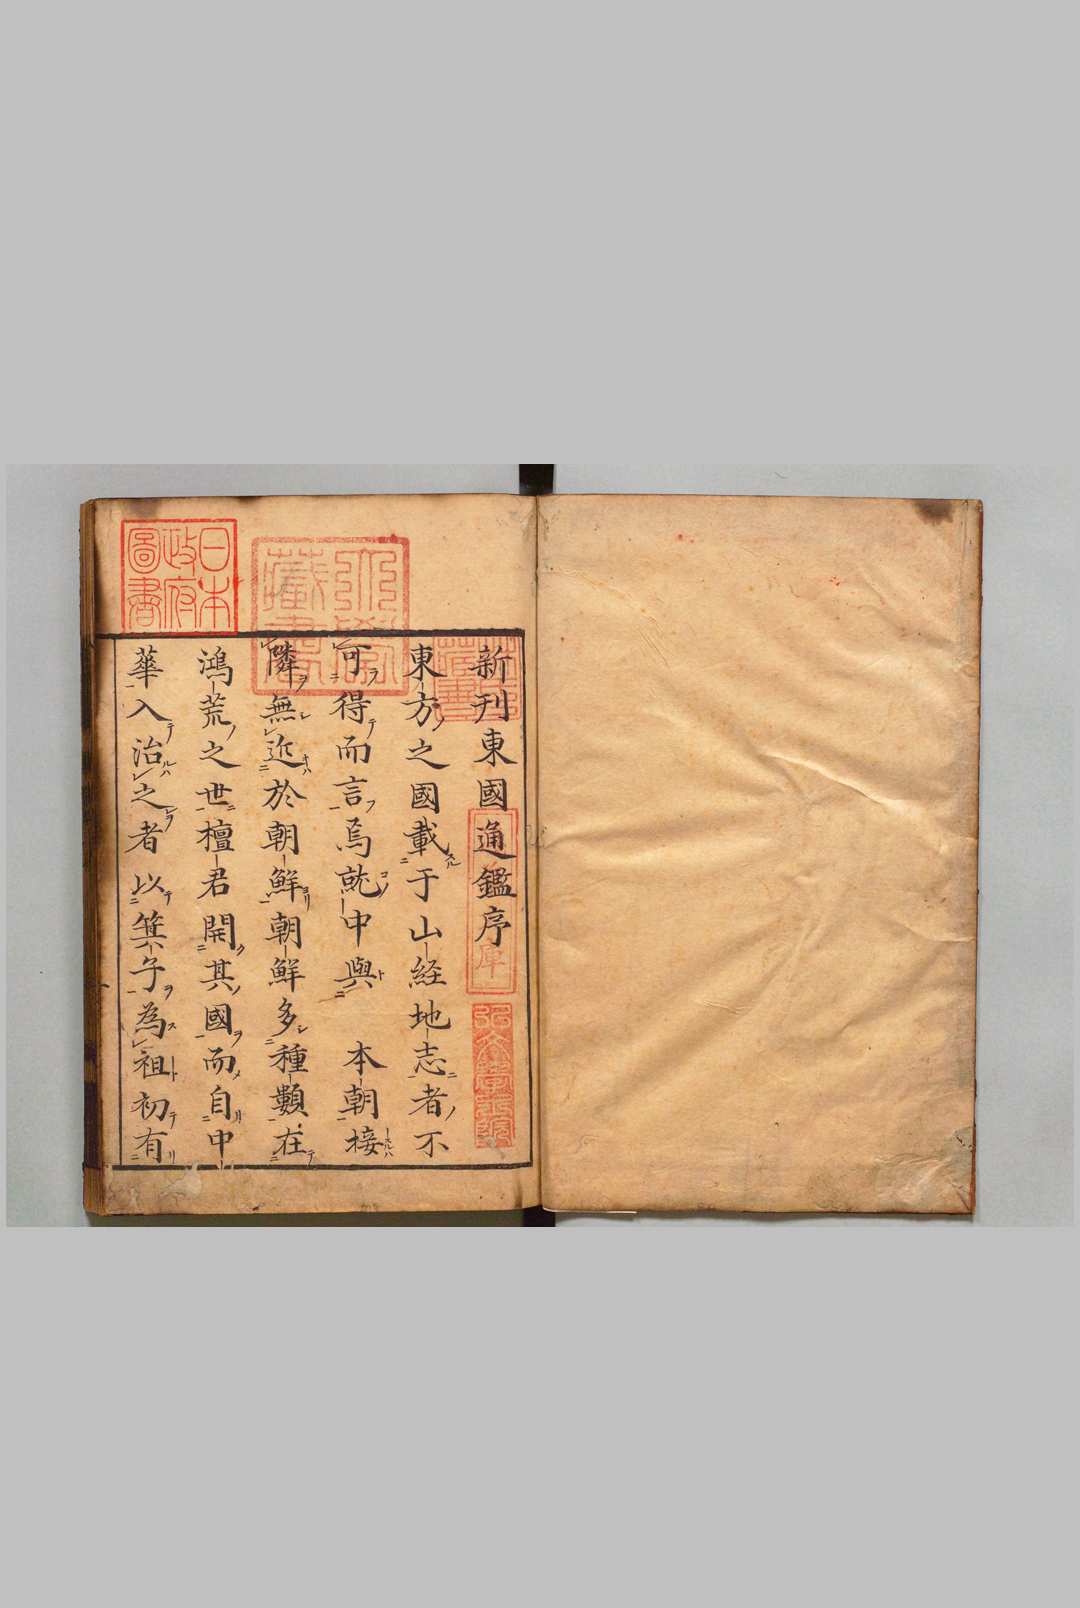 新刊東國通鑑序
東方之國載于山経地志者不
可得而言焉就中與　本朝接
隣無近於朝鮮朝鮮多種類在
鴻荒之世檀君開其國而自中
華入治之者以箕子為祖初有
日本
政府
圖書
弘文學士院